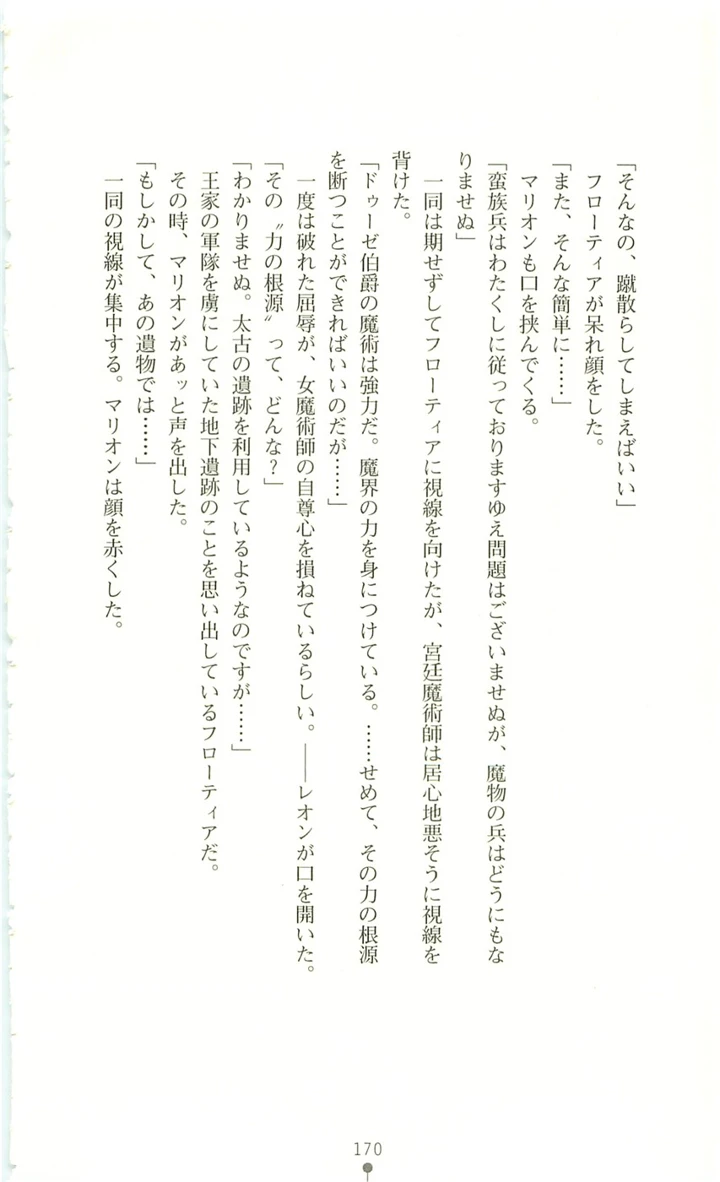 「そんなの、蹴散らしてしまえばいい」
フローティアが呆れ顔をした。
「また、そんな簡単に……」
マリオンも口を挟んでくる。
「蛮族兵はわたくしに従っておりますゆえ問題はございませぬが、魔物の兵はどうにもな
りませぬ」
一同は期せずしてフローティアに視線を向けたが、宮廷魔術師は居心地悪そうに視線を
背けた。
「ドゥーゼ伯爵の魔術は強力だ。魔界の力を身につけている。……せめて、その力の根源
を断つことができればいいのだが……」
一度は破れた屈辱が、女魔術師の自尊心を損ねているらしい。――レオンが口を開いた。
「その〝力の根源〟って、どんな？」
「わかりませぬ。太古の遺跡を利用しているようなのですが……」
王家の軍隊を虜にしていた地下遺跡のことを思い出しているフローティアだ。
その時、マリオンがあッと声を出した。
「もしかして、あの遺物では……」
一同の視線が集中する。マリオンは顔を赤くした。
170